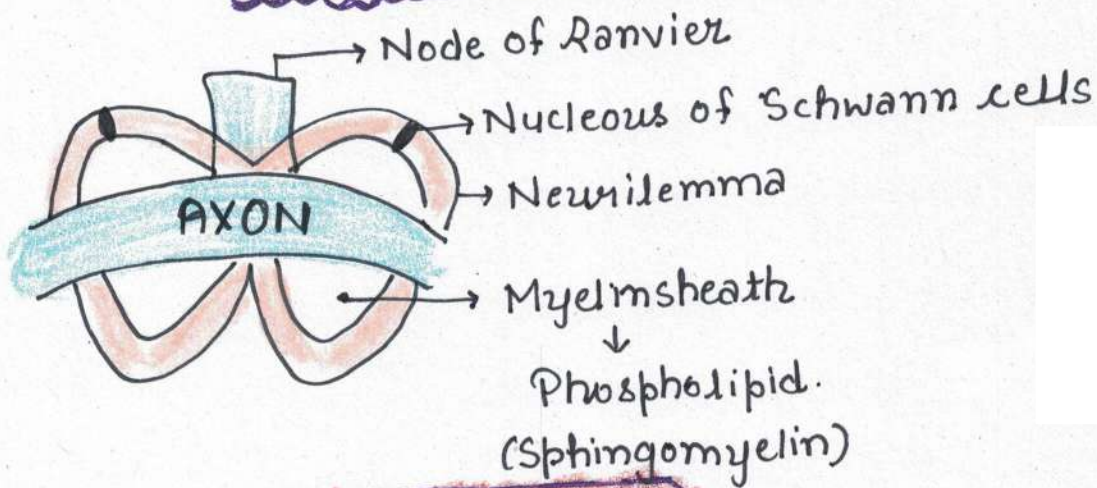 Node of Ranvier
Nucleous of Schwann cells
Neurilemma
AXON
Myelmsheath
Phospholipid.
(Sphingomyelin)